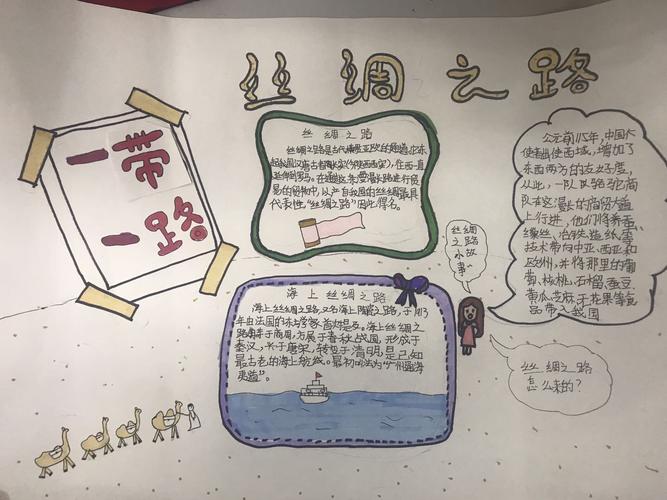 丝绸之路
一带
一路
丝绸之路
丝绸之路是古代横贯亚欧的通道，它东
起我国汉唐古都长安（陕西西安），在西一直
延伸到罗马。在通过这条漫长路进行贸
易的货物中，以产自我国的丝绸最具
代表性，“丝绸之路”因此得名。
公元前115年，中国大
使西域，增加了
东西两方的友好度，
从此，一队队骆驼商
队在这漫长的商贸大道
上行进，他们将养蚕
缫丝、冶铁、造纸、等
技术带向中亚、西亚和
欧洲，并将那里的葡
萄、核桃、石榴、蚕豆、
黄瓜、芝麻、无花果等食
品带入我国
丝绸
之路
小故
事~
海上丝绸之路
海上丝绸之路，又名海上陶瓷之路，于1913
年由法国的东方学家首次提及。海上丝绸之
路萌芽于商周，发展于春秋战国，形成于
秦汉，兴于唐宋，转变于清明，是已知
最古老的海上航线。最初叫法为“广州通海
夷道”。
丝绸之路
怎么来的？